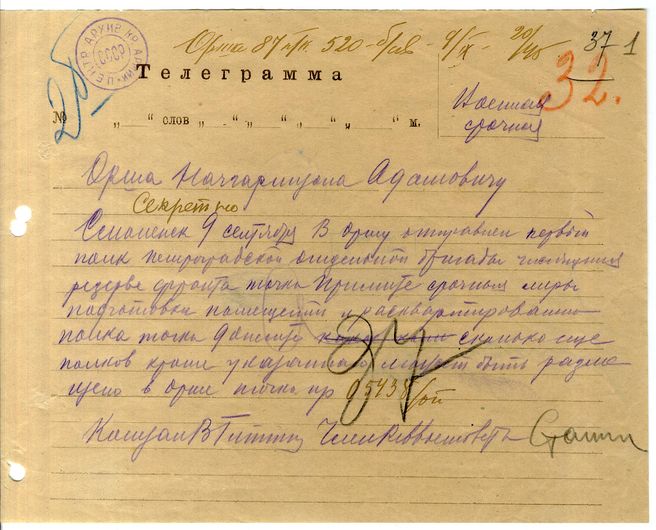 ЦЕНТР АРХИВ КР. АРМИИ СССР
Орша 87 520 9/IX 20/
37 1
Телеграмма
32.
28
№ „ “ слов „ “ „ “ „ “ м.
Военная
срочная
Орша Начгарнизона Адамовичу
Секретно
Смоленск 9 сентября В Оршу отправлен первый
полк петроградской отдельной бригады
резерве фронта точка Примите срочныя меры
подготовки помещений и расквартированию
полка точка Донесите сколько еще
полков кроме указанного может быть разме
щено в Орше точка нр 05438/оп
37
Сталин